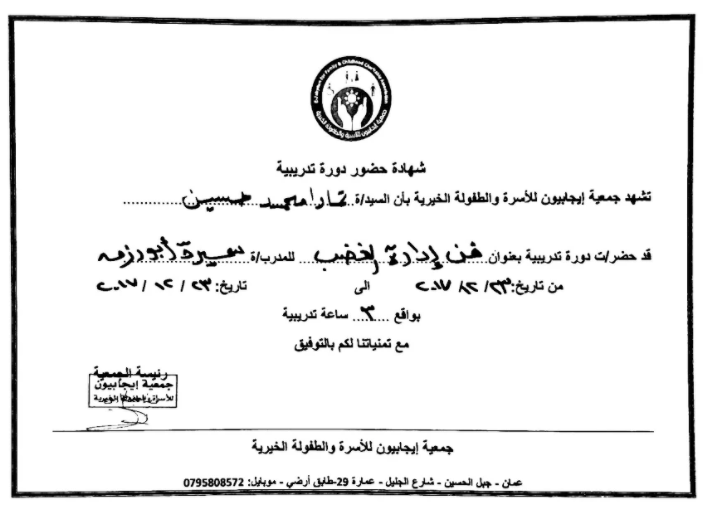 Ejabiyon for Family & Childhood Charitable Association
جمعية إيجابيون للأسرة والطفولة الخيرية
شهادة حضور دورة تدريبية
تشهد جمعية إيجابيون للأسرة والطفولة الخيرية بأن السيد/ة تمارا محمد حسين
قد حضر/ت دورة تدريبية بعنوان فن إدارة الغضب للمدرب/ة سميرة أبورزمه
من تاريخ: ٢٣/ ١٢/ ٢٠١٧ الى تاريخ: ٢٣ / ١٢ / ٢٠١٧
بواقع ٣ ساعة تدريبية
مع تمنياتنا لكم بالتوفيق
رئيسة الجمعية
جمعية إيجابيون
للأسرة والطفولة الخيرية
جمعية إيجابيون للأسرة والطفولة الخيرية
عمان - جبل الحسين - شارع الجليل - عمارة 29-طابق أرضي - موبايل: 0795808572